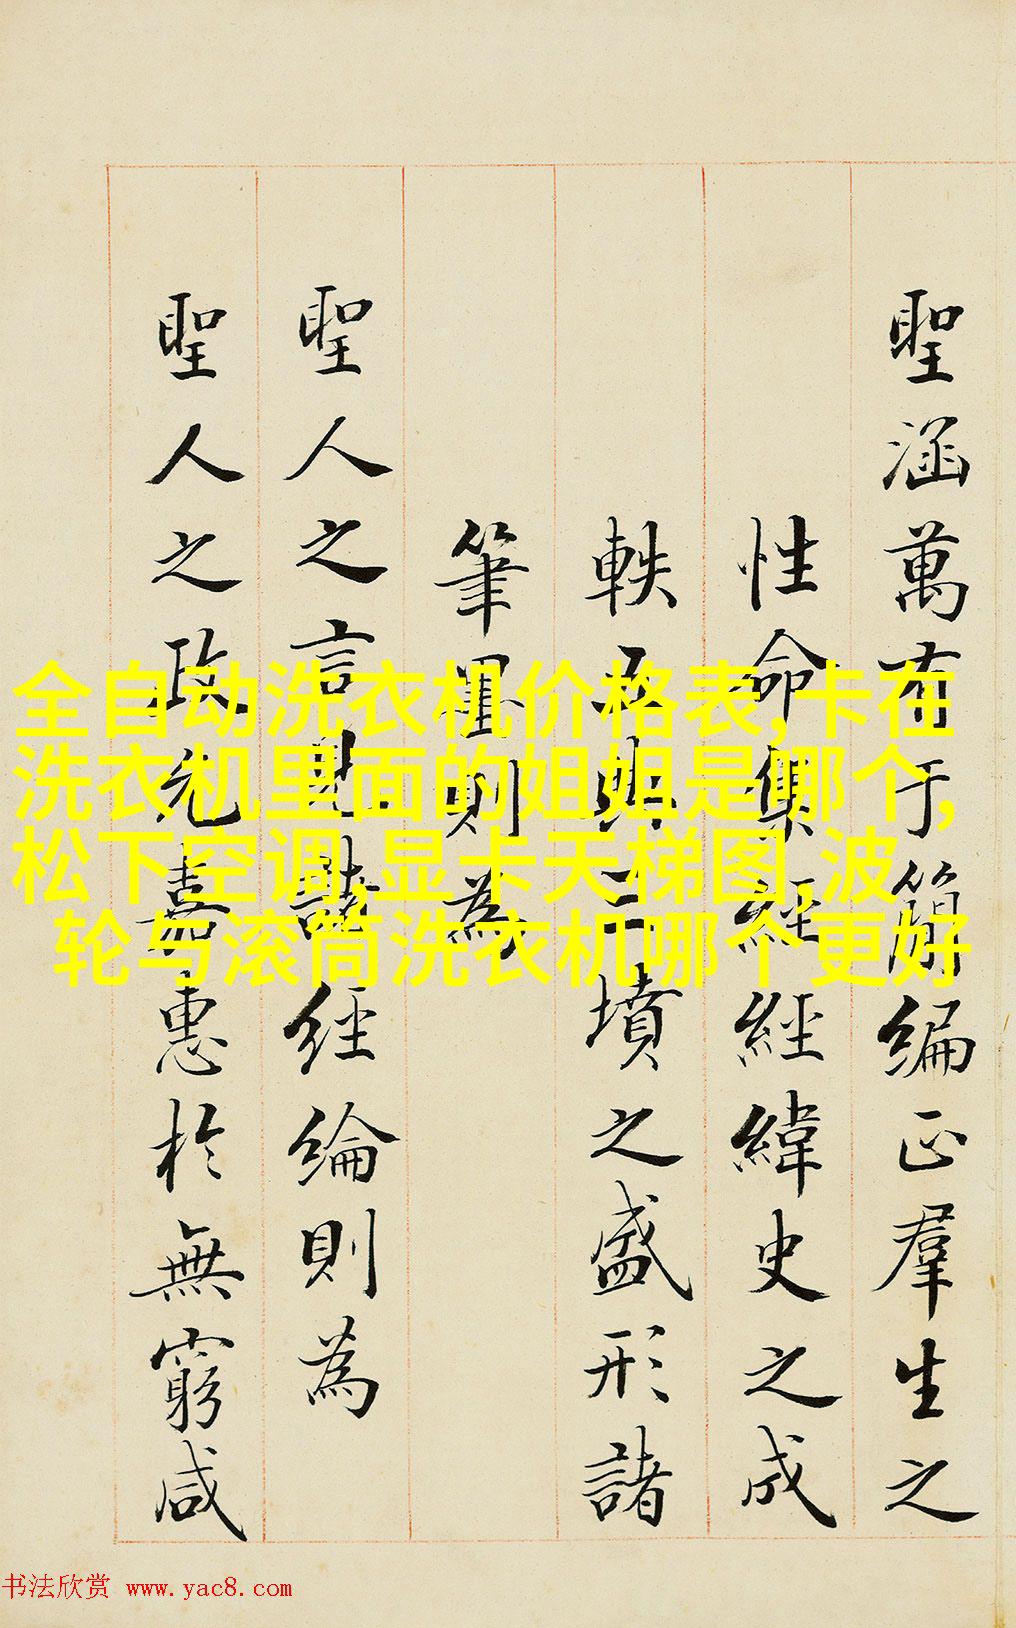 聖涵萬有于簡編正羣生之
性命集經經緯史之成
軼五典三墳之盛形諸
筆墨則為
聖人之言見諸經綸則為
聖人之政先嘉惠於無窮咸
全自动洗衣机价格表,卡在
洗衣机里面的姐姐是哪个,
松下空调,显卡天梯图,波
轮与滚筒洗衣机哪个更好
书法欣赏 www.yac8.com